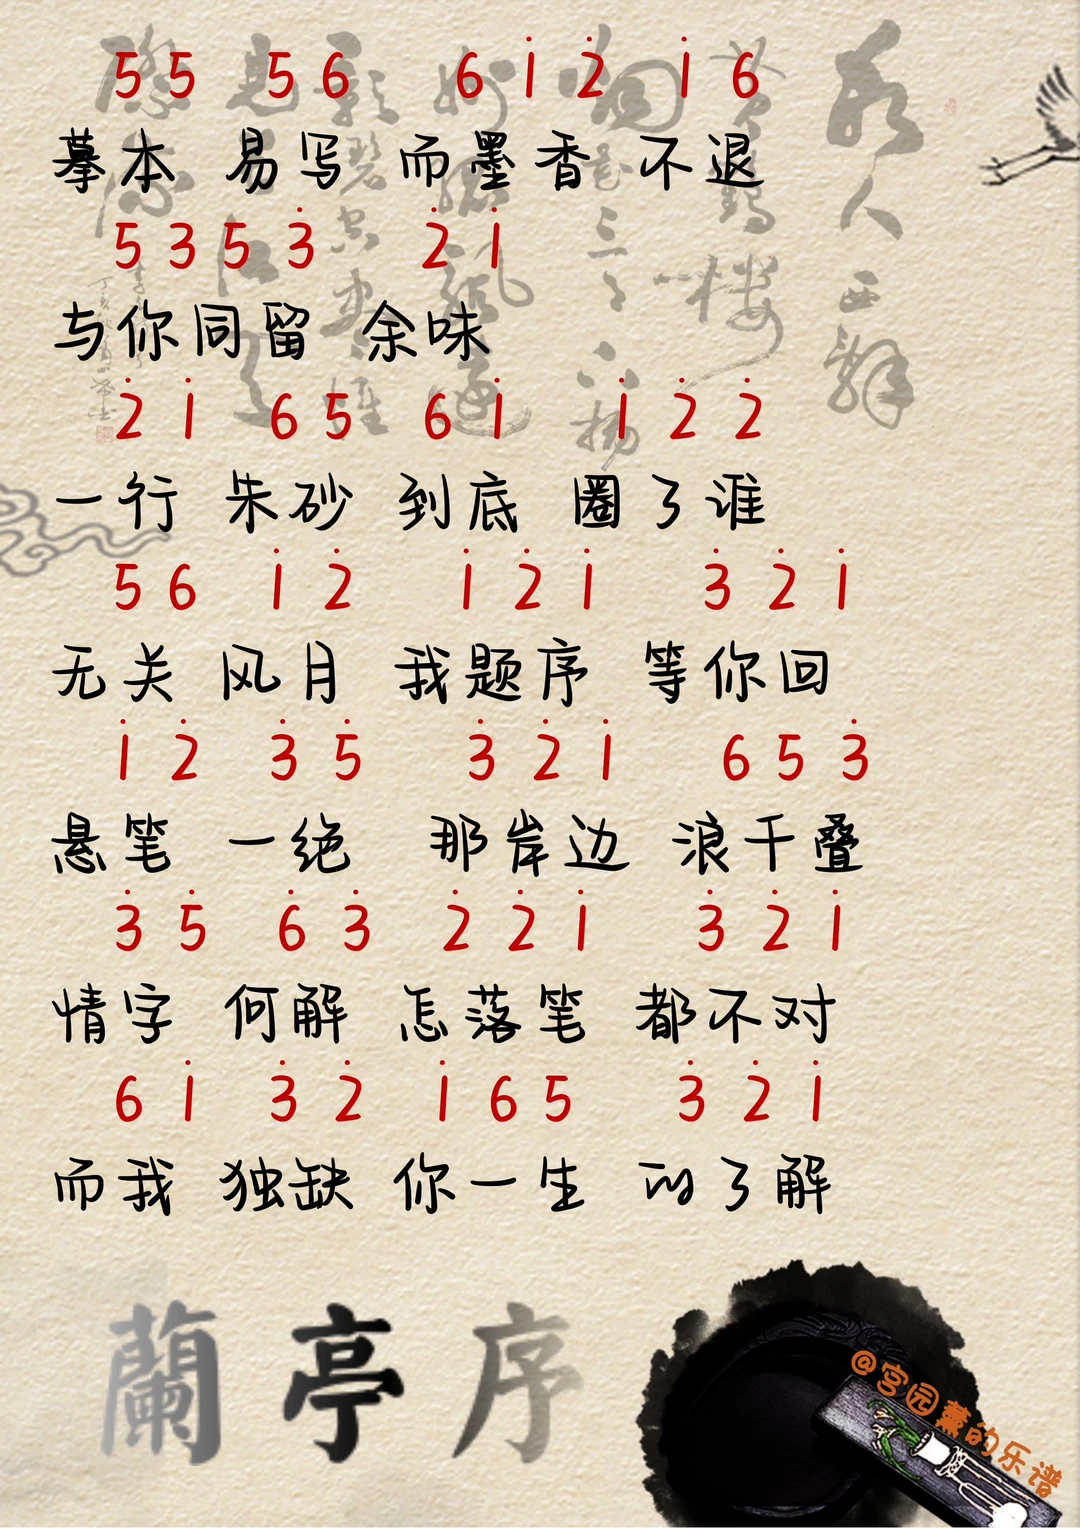 5 5 5 6 6 1̇ 2̇ 1̇ 6
摹本 易写 而墨香 不退
5 3 5 3̇ 2̇ 1̇
与你同留 余味
2̇ 1̇ 6 5 6 1̇ 1̇ 2̇ 2̇
一行 朱砂 到底 圈了谁
5 6 1̇ 2̇ 1̇ 2̇ 1̇ 3̇ 2̇ 1̇
无关 风月 我题序 等你回
1̇ 2̇ 3̇ 5̇ 3̇ 2̇ 1̇ 6 5 3̇
悬笔 一绝 那岸边 浪千叠
3̇ 5̇ 6̇ 3̇ 2̇ 2̇ 1̇ 3̇ 2̇ 1̇
情字 何解 怎落笔 都不对
6 1̇ 3̇ 2̇ 1̇ 6 5 3̇ 2̇ 1̇
而我 独缺 你一生 的了解
蘭亭序
@宫园薰的乐谱